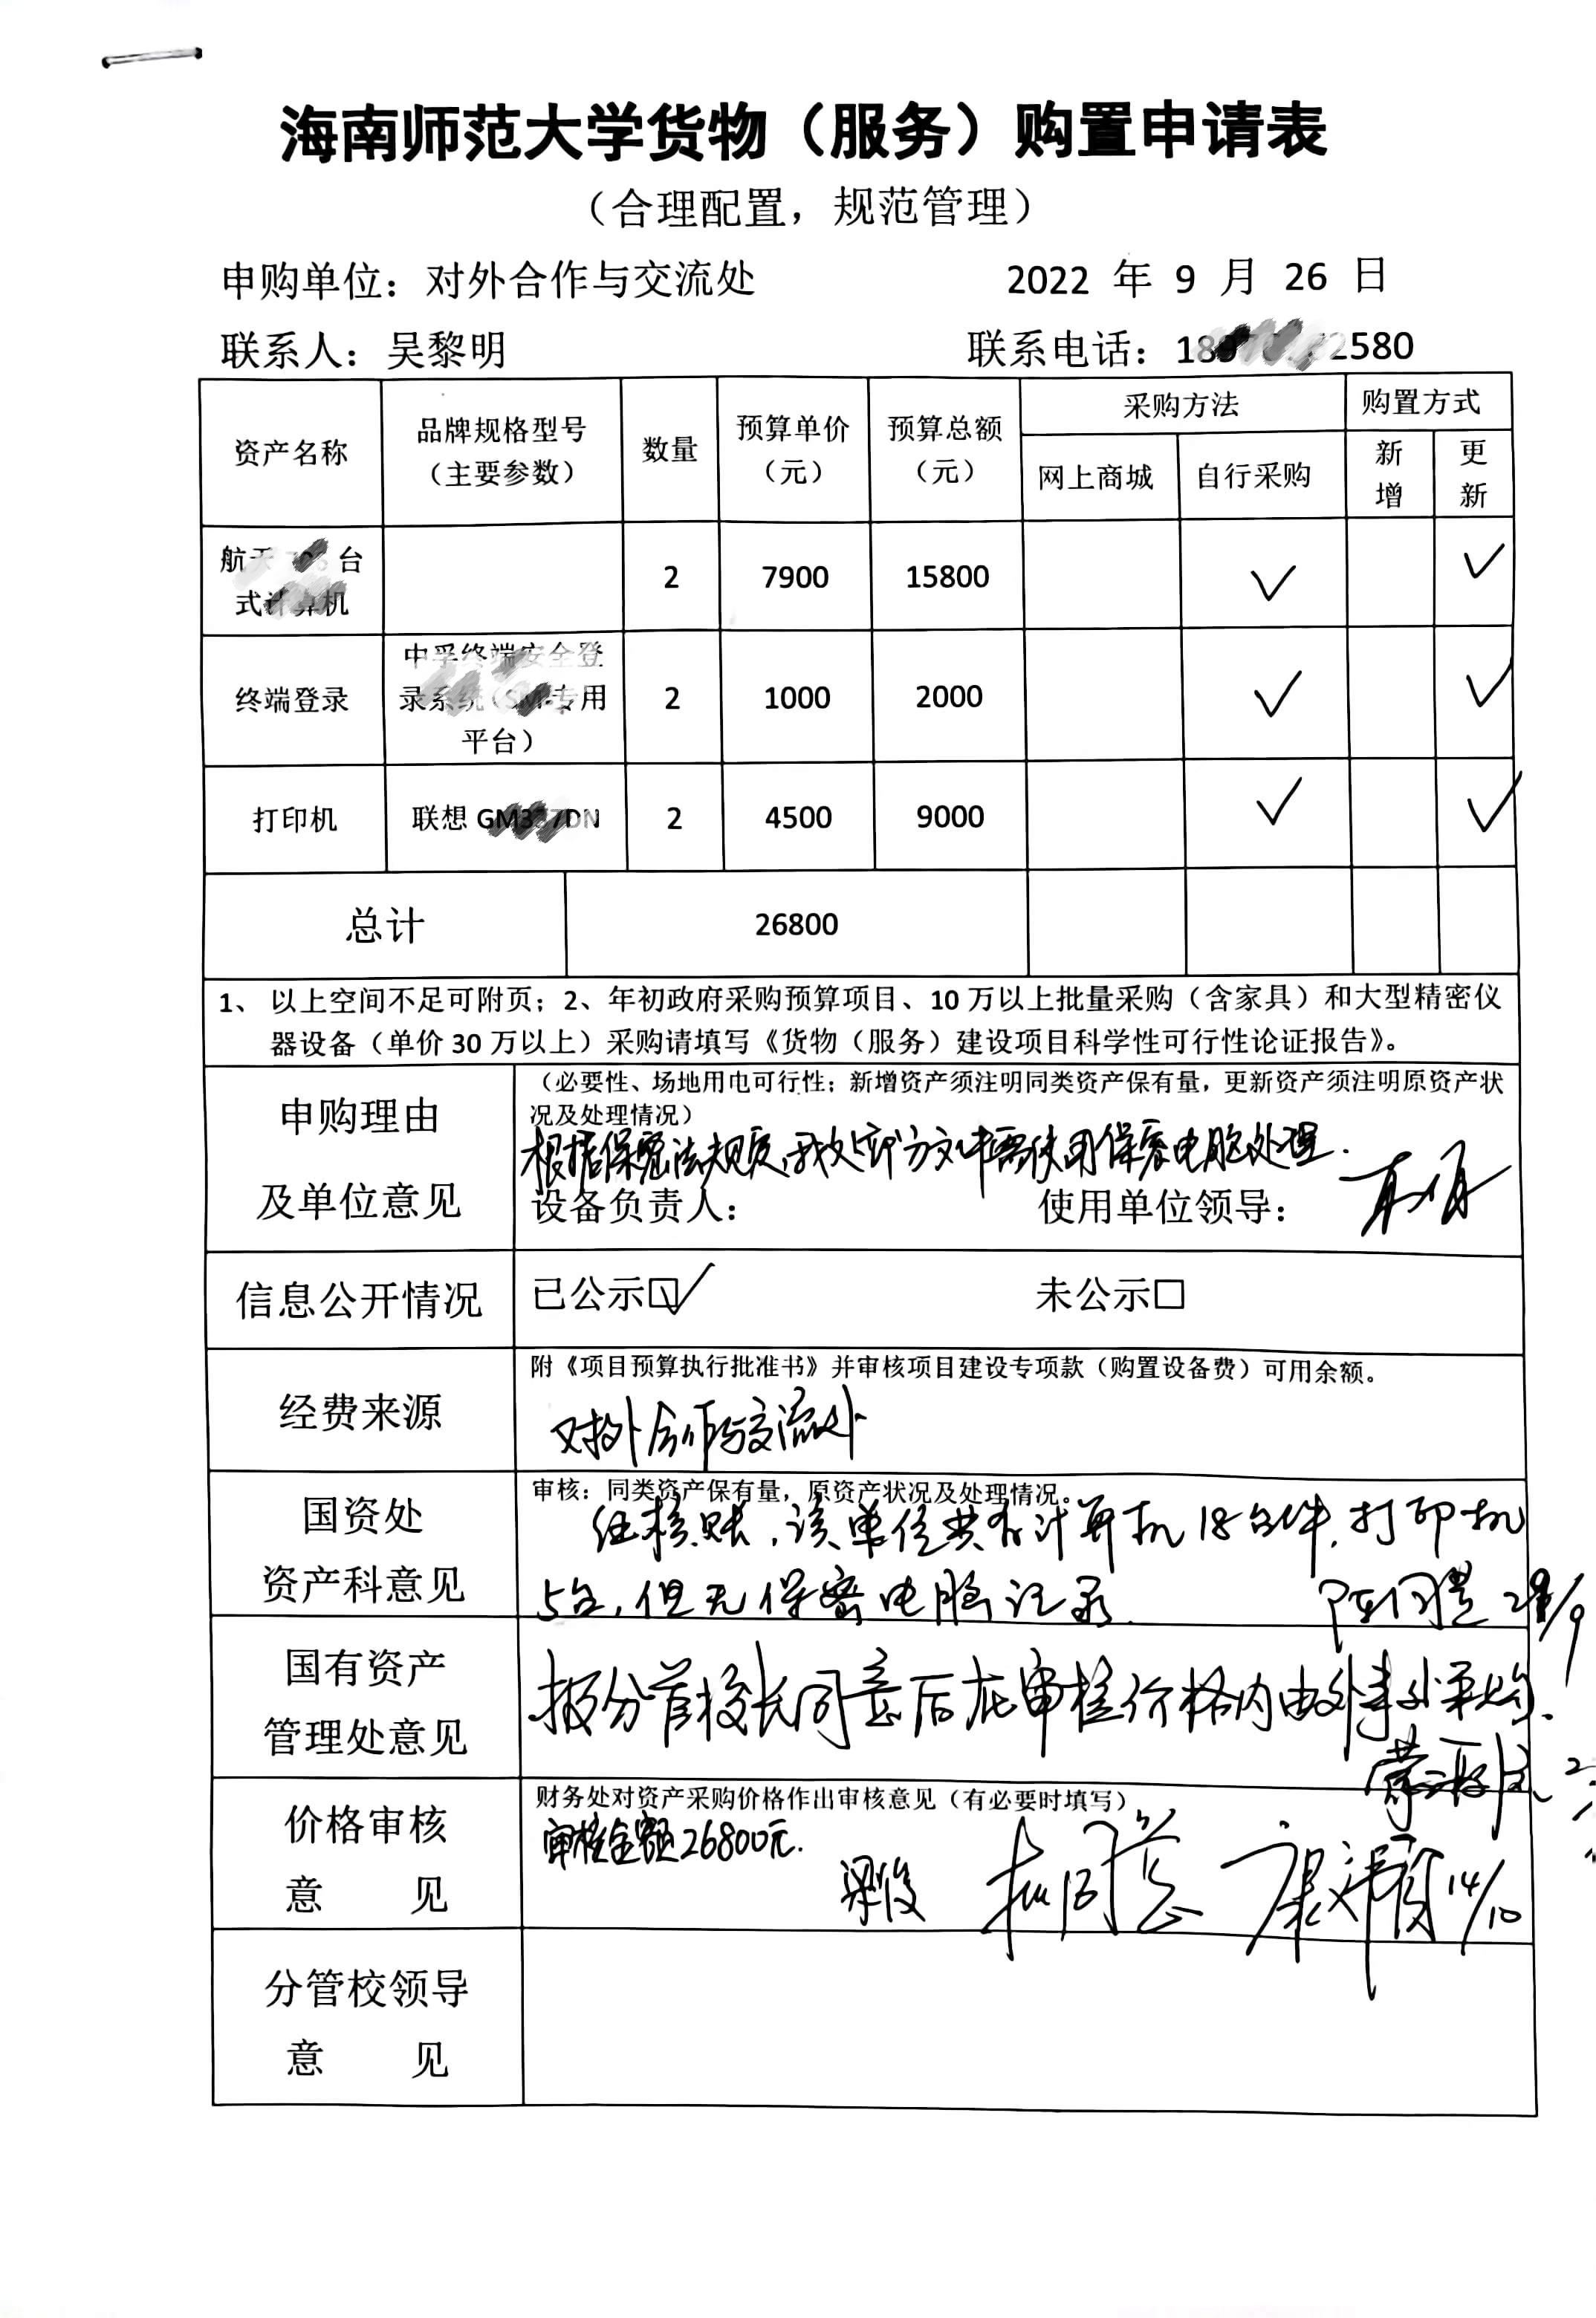 海南师范大学货物（服务）购置申请表
（合理配置，规范管理）
申购单位：对外合作与交流处 2022 年 9 月 26 日
联系人：吴黎明 联系电话：18 2580
资产名称 品牌规格型号（主要参数） 数量 预算单价（元） 预算总额（元） 采购方法 购置方式
网上商城 自行采购 新增 更新
航天 台
式计算机 2 7900 15800 ✓ ✓
终端登录 中孚终端安全登
录系统（ 专用
平台） 2 1000 2000 ✓ ✓
打印机 联想 GM 7DN 2 4500 9000 ✓ ✓
总计 26800
1、 以上空间不足可附页；2、年初政府采购预算项目、10 万以上批量采购（含家具）和大型精密仪
器设备（单价 30 万以上）采购请填写《货物（服务）建设项目科学性可行性论证报告》。
申购理由
及单位意见
（必要性、场地用电可行性；新增资产须注明同类资产保有量，更新资产须注明原资产状
况及处理情况）
根据保密法规定，我处部分文件需使用保密电脑处理．
设备负责人： 使用单位领导：
信息公开情况 已公示☑ 未公示□
经费来源
附《项目预算执行批准书》并审核项目建设专项款（购置设备费）可用余额。
对外合作与交流处
国资处
资产科意见
审核：同类资产保有量，原资产状况及处理情况。
经核账，该单位共有计算机18台件，打印机
5台，但无保密电脑记录．
国有资产
管理处意见
报分管校长同意后在审核价格内由外事处采购．
价格审核
意 见
财务处对资产采购价格作出审核意见（有必要时填写）
审核金额26800元．
拟同意 14/10
分管校领导
意 见